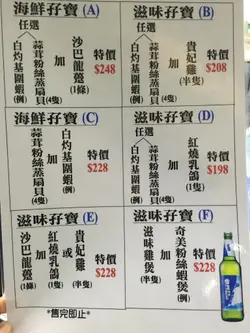 海鮮孖寶 (A)
任選
白灼基圍蝦(例)
蒜茸粉絲蒸扇貝(4隻)
加
沙巴龍躉(1條)
特價
$248
滋味孖寶 (B)
任選
白灼基圍蝦(例)
蒜茸粉絲蒸扇貝(4隻)
加
貴妃雞(半隻)
特價
$208
海鮮孖寶 (C)
蒜茸粉絲蒸扇貝(4隻)
加
白灼基圍蝦(例)
特價
$228
滋味孖寶 (D)
任選
白灼基圍蝦(例)
蒜茸粉絲蒸扇貝(4隻)
加
紅燒乳鴿(1隻)
特價
$198
滋味孖寶 (E)
沙巴龍躉(1條)
加
紅燒乳鴿(1隻)
或
貴妃雞(半隻)
特價
$228
滋味孖寶 (F)
滋味雞煲(半隻)
加
奇美粉絲蝦煲(例)
特價
$228
*售完即止*